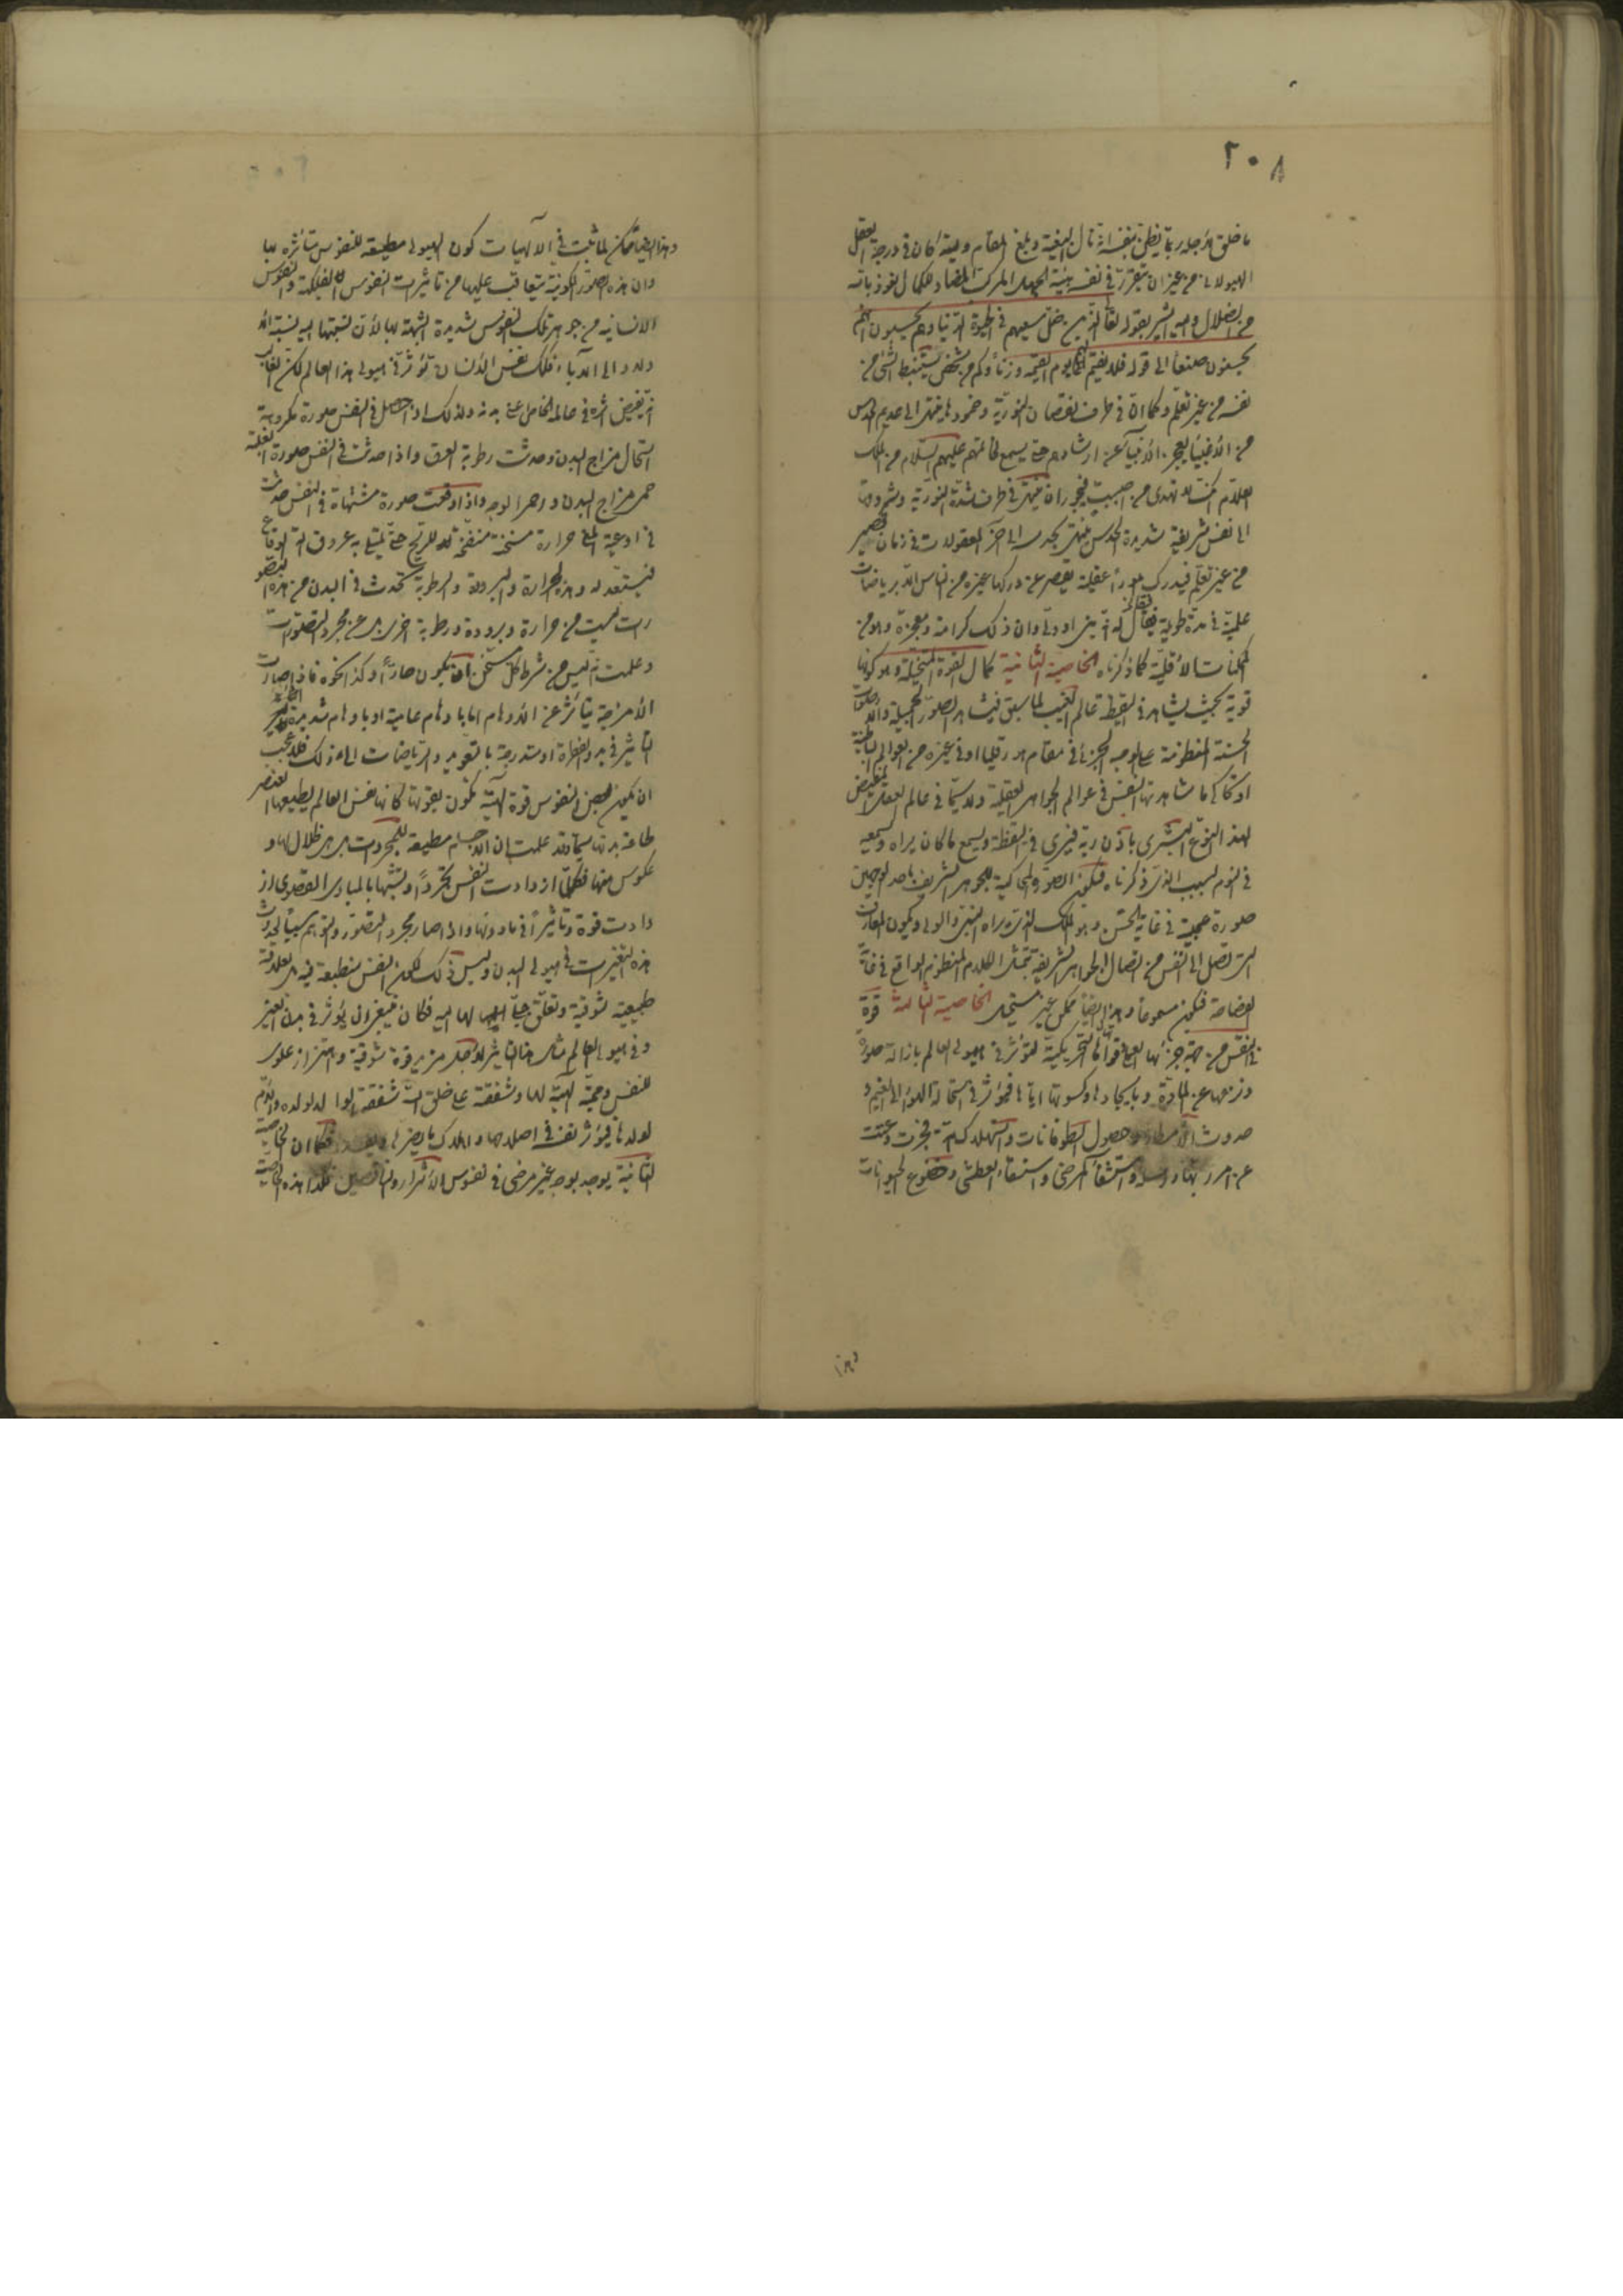 ٢٠٨
ما خلق لاجله ربما يظن بنفسه انه نال البغية وبلغ المقام وليته كان في درجة العقل
الهيولانى من غير ان يتقرر في نفسه هيئة الجهل المركب المضاد للكمال نعوذ بالله
من الضلال واليه اشير بقوله تعالى الذين ضل سعيهم في الحيوة الدنيا وهم يحسبون انهم
يحسنون صنعا الى قوله فلا نقيم لهم يوم القيمة وزنا وكم من شخص يستنبط الشئ من
نفسه من غير تعلم وكما ان في طرف نقصان النورية وخمودها ينتهى الى عديم الحدس
من الاغبياء يعجز الانبياء عن ارشادهم حتى يسمع خاتمهم عليهم السلام من الملك
العلام انك لا تهدى من احببت فيجوز ان ينتهى في طرف شدة النورية وشروقها
الى نفس شريفة شديدة الحدس ينتهى بحدسه الى آخر المعقولات في زمان قصير
من غير تعلم فيدرك امورا عقلية يقصر عن دركها غيره من الناس الا برياضات
علمية في مدة طويلة فيقال له انه نبى او ولى وان ذلك كرامة ومعجزة وهو من
الممكنات الاقلية كما ذكرناه الخاصية الثانية كمال القوة المتخيلة وهو كونها
قوية بحيث يشاهد في اليقظة عالم الغيب لما سبق فيشاهد الصور الجميلة والاصوات
الحسنة المنظومة على الوجه الجزئى في مقام هورقليا او في غيره من العوالم الباطنية
او تحاكى ما شاهدتها النفس في عوالم الجواهر العقلية ولا سيما في عالم العقل المفيض
لهذا النوع البشرى باذن ربه فيرى في اليقظة ويسمع ما كان يراه ويسمعه
في النوم للسبب الذى ذكرناه فتكون الصورة المحاكية للجوهر الشريف باحد الوجهين
صورة عجيبة في غاية الحسن وهو الملك الذى يراه النبى والولى ويكون المعارف
التى تصل الى النفس من اتصال الجواهر الشريفة يتمثل الكلام المنظوم الواقع في غاية
الفصاحة فيكون مسموعا وهذا ايضا ممكن غير مستحيل الخاصية الثالثة قوة
في النفس من جهة جزئها العملى وقواها التحريكية لتؤثر في هيولى العالم بازالة صورة
ونزعها عن المادة وبايجادها وكسوتها اياها فيؤثر في استحالة الهواء الى الغيم و
حدوث الامطار وحصول الطوفانات واستهلاك امة فجرت وعتت
عن امر ربها ورسله واستشفاء المرضى واستسقاء العطشى وخضوع الحيوانات
وهذا
وهذا ايضا ممكن لما ثبت في الالهيات كون الهيولى مطيعة للنفوس متاثرة بها
وان هذه الصور الكونية يتعاقب عليها من تاثيرات النفوس الفلكية والنفوس
الانسانية من جوهر تلك النفوس شديدة الشبه بها لان نسبتها اليه نسبة الا
ولاد الى الاباء فلك نفس الانسان تؤثر في هيولى هذا العالم لكن الغالب
انه يقبض اثره في عالمه الخاص اعنى بدنه ولذلك اذا حصل في النفس صورة مكروهة
استحال مزاج البدن وحدثت رطوبة العرق واذا حدثت في النفس صورة الغلبة
حمى مزاج البدن واحمر الوجه واذا وقعت صورة مشتهاة في النفس حدثت
في اوعية المنى حرارة مسخنة منفخة للريح حتى يمتلى به عروق آلة الوقاع
فيستعد له وهذه الحرارة والبرودة والرطوبة تحدث في البدن من هذه التصو
رات ليست من حرارة وبرودة ورطوبة اخرى بل عن مجرد التصورات
وعلمت انه ليس من شرط كل مسخن ان يكون حارا وكذا نحوه فاذا صارت
الامزجة يتاثر عن الاوهام اما باوهام عامية او باوهام شديدة
التاثير في بدو الفطرة او متدرجة بالتعويد والرياضات الى ذلك فلا عجب
ان يكون لبعض النفوس قوة الهية تكون بقوتها كانها نفس العالم يطيعها العنصر
طاعة بدنها سيما وقد علمت ان الاجسام مطيعة للمجردات بل هي ظلال لها و
عكوس منها فكلما ازدادت النفس تجردا وتشبها بالمبادى القصوى از
دادت قوة وتاثيرا فيما دونها واذا صار مجرد التصور والتوهم سببا لحدوث
هذه التغيرات في هيولى البدن وليس ذلك لكون النفس منطبعة فيه بل لعلاقة
طبيعية شوقية وتعلق جبلى لها اليه فكان ينبغى ان يؤثر في بدن الغير
وفي هيولى العالم مثل هذا التاثير لاجل مزيد قوة شوقية واهتزاز علوى
للنفس ومحبة الهية لها وشفقة على خلق الله شفقة الوالد لولده والام
لولدها فيؤثر نفسه في اصلاحها واهلاك ما يضرها فكما ان الخاصية
الثانية يوجد بوجه غير مرضى في نفوس الاشرار والناقصين فكذا هذه الخاصية